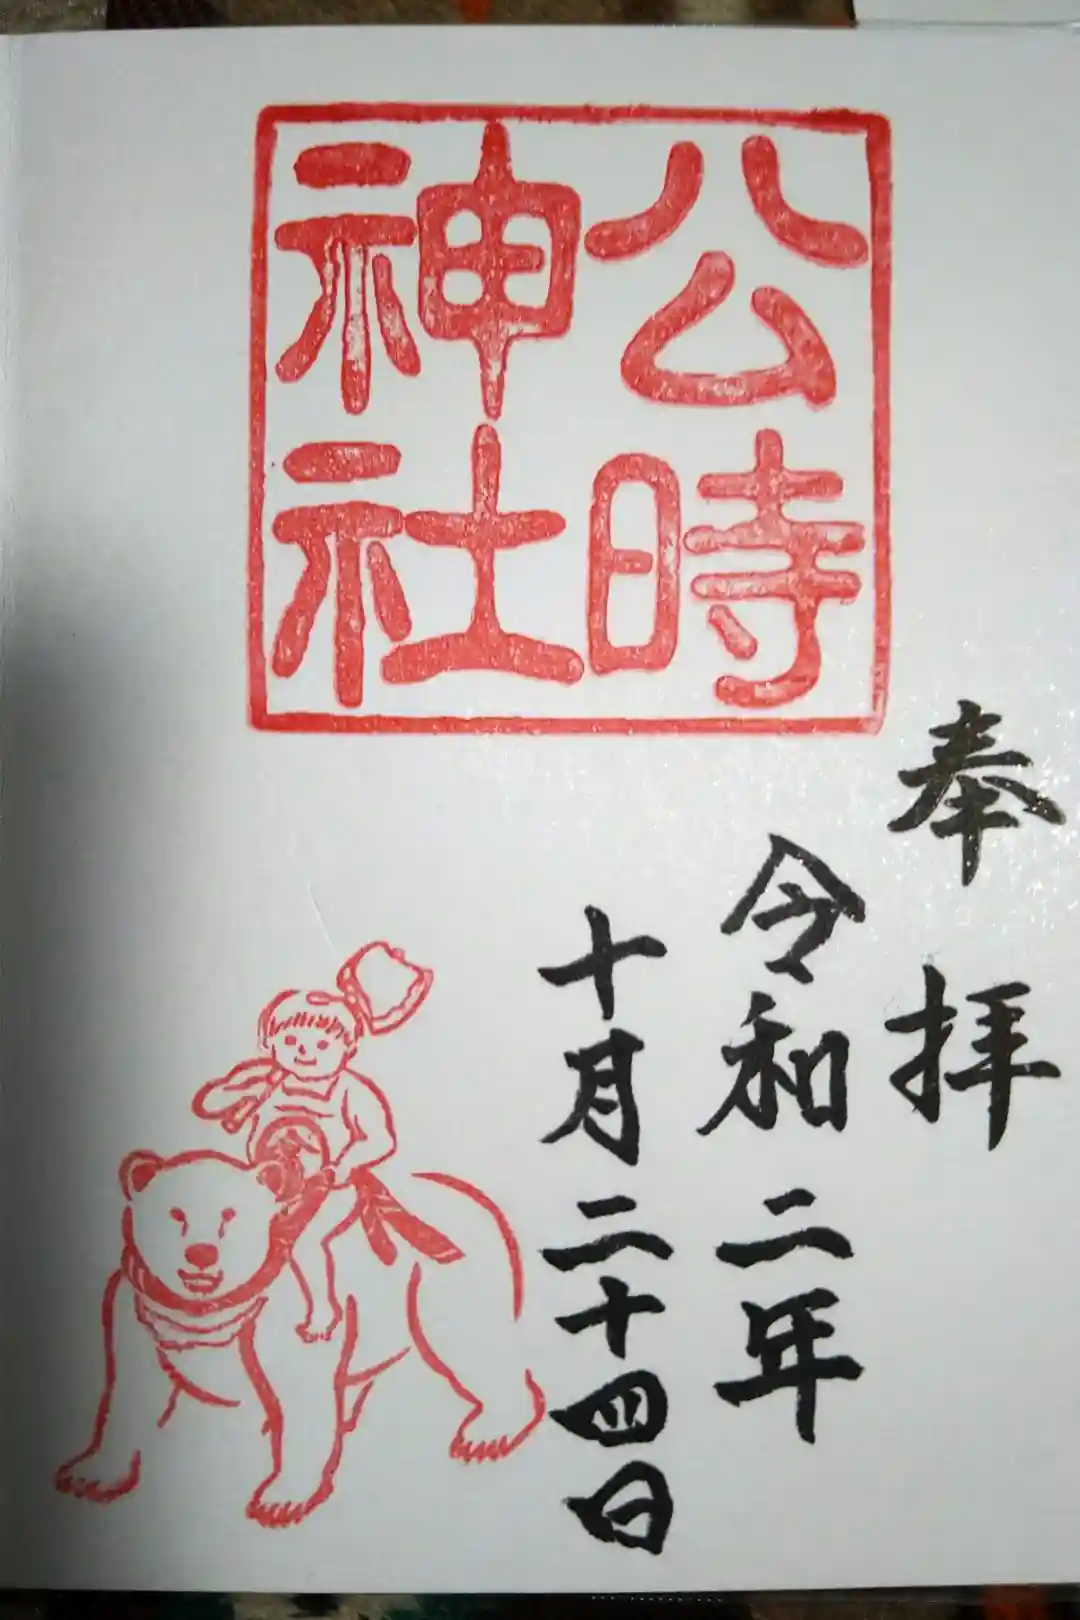 公時
神社
奉拝
令和二年
十月二十四日